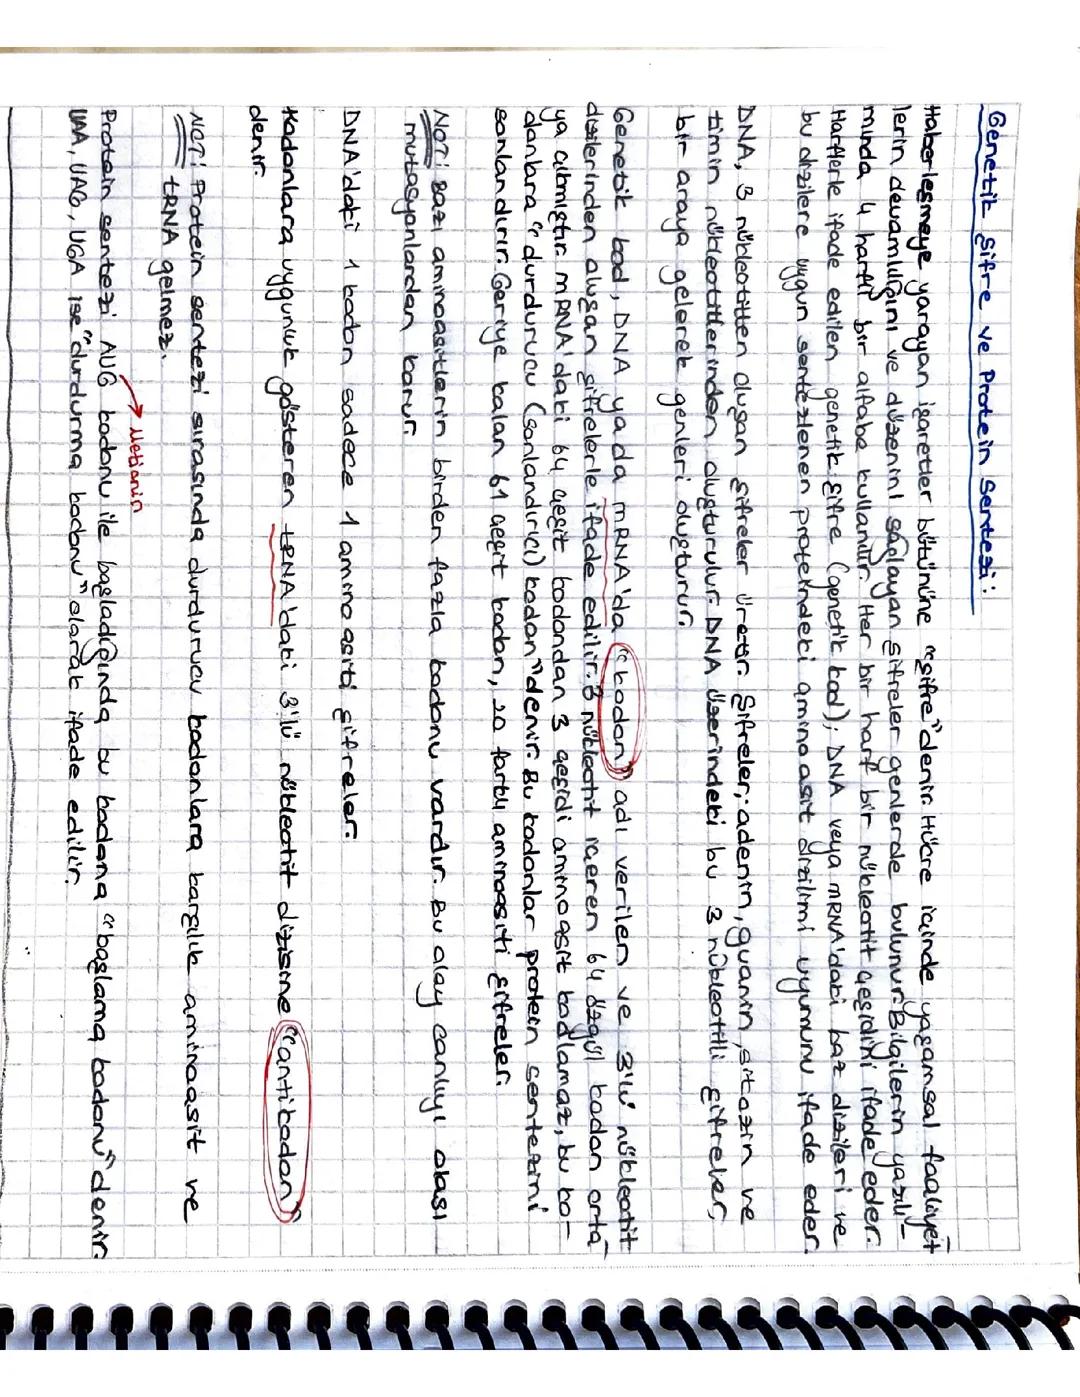 Genetik Şifre ve Protein Sentezi:
Haberleşmeye yarayan işaretler bütününe "şifre" denir. Hücre içinde yaşamsal faaliyet-
lerin devamlılığını ve düzenini sağlayan şifreler genlerde bulunur. Bilgilerin yazılı-
mında 4 harfli bir alfabe kullanılır. Her bir harf bir nükleotit çeşidini ifade eder.
Harflerle ifade edilen genetik şifre (genetik kod); DNA veya mRNA'daki baz dizileri ve
bu dizilere uygun sentezlenen proteindeki amino asit dizilimi uyumunu ifade eder.
DNA, 3 nükleotitten oluşan şifreler üretir. Şifreler; adenin, guanin, sitozin ve
timin nükleotitlerinden oluşturulur. DNA üzerindeki bu 3 nükleotitli şifreler,
bir araya gelerek genleri oluşturur.
Genetik kod, DNA ya da mRNA'da "kodon" adı verilen ve 3'lü nükleotit
dizilerinden oluşan şifrelerle ifade edilir. 3 nükleotit içeren 64 özgül kodon orta-
ya çıkmıştır. mRNA'daki 64 çeşit kodondan 3 çeşidi aminoasit kodlamaz, bu ko-
donlara "durdurucu (sonlandırıcı) kodon" denir. Bu kodonlar protein sentezini
sonlandırır. Geriye kalan 61 çeşit kodon, 20 farklı aminoasiti şifreler.
NOT: Bazı aminoasitlerin birden fazla kodonu vardır. Bu olay canlıyı olası
mutasyonlardan korur.
DNA'daki 1 kodon sadece 1 amino asiti şifreler.
Kodonlara uygunluk gösteren tRNA'daki 3'lü nükleotit dizisine "antikodon"
denir.
NOT: Protein sentezi sırasında durdurucu kodonlara karşılık aminoasit ve
tRNA gelmez.
Metionin
Protein sentezi AUG kodonu ile başladığında bu kodona "başlama kodonu" denir.
UAA, UAG, UGA ise "durdurma kodonu" olarak ifade edilir.